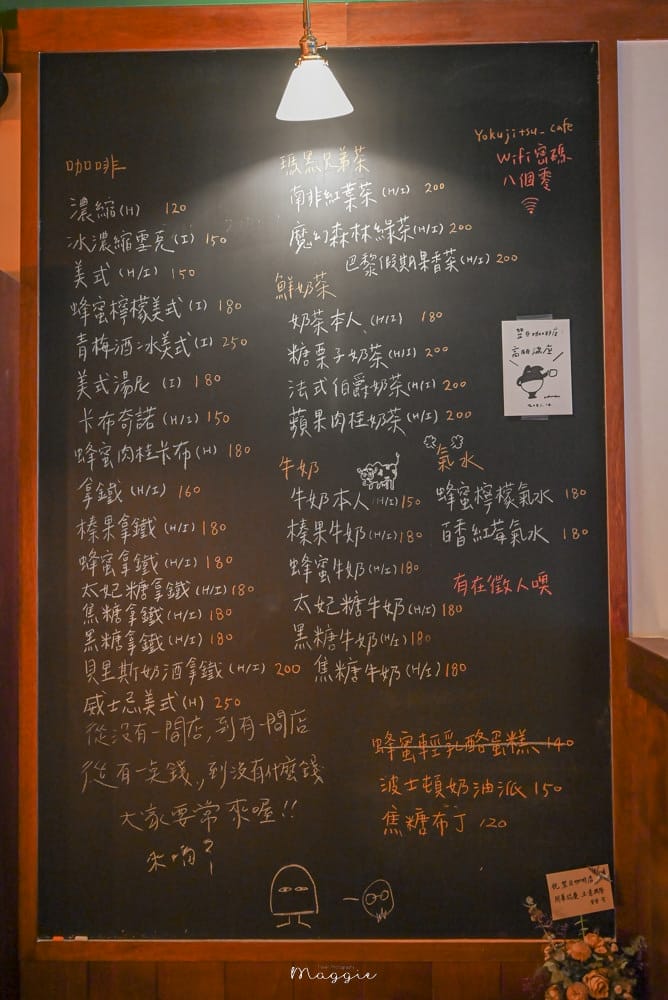 咖啡
濃縮(H) 120
冰濃縮雪克(I) 150
美式(H/I) 150
蜂蜜檸檬美式(I) 180
青梅酒冰美式(I) 250
美式湯尼(I) 180
卡布奇諾(H/I) 150
蜂蜜肉桂卡布(H) 180
拿鐵(H/I) 160
榛果拿鐵(H/I) 180
蜂蜜拿鐵(H/I) 180
太妃糖拿鐵(H/I) 180
焦糖拿鐵(H/I) 180
黑糖拿鐵(H/I) 180
貝里斯奶酒拿鐵(H/I) 200
威士忌美式(H) 250
從沒有一間店,到有一間店
從有一點錢,到沒有什麼錢
大家要常來喔!!
來嘛?
瑪黑兄弟茶
南非紅葉茶(H/I) 200
魔幻森林綠茶(H/I) 200
巴黎假期果香茶(H/I) 200
鮮奶茶
奶茶本人(H/I) 180
糖栗子奶茶(H/I) 200
法式伯爵奶茶(H/I) 200
蘋果肉桂奶茶(H/I) 200
牛奶
牛奶本人(H/I) 150
榛果牛奶(H/I) 180
蜂蜜牛奶(H/I) 180
太妃糖牛奶(H/I) 180
黑糖牛奶(H/I) 180
焦糖牛奶(H/I) 180
氣水
蜂蜜檸檬氣水 180
百香紅莓氣水 180
有在徵人噢
Yokujitsu_cafe
Wifi密碼
八個零
蜂蜜輕乳酪蛋糕 140
波士頓奶油派 150
焦糖布丁 120
Maggie